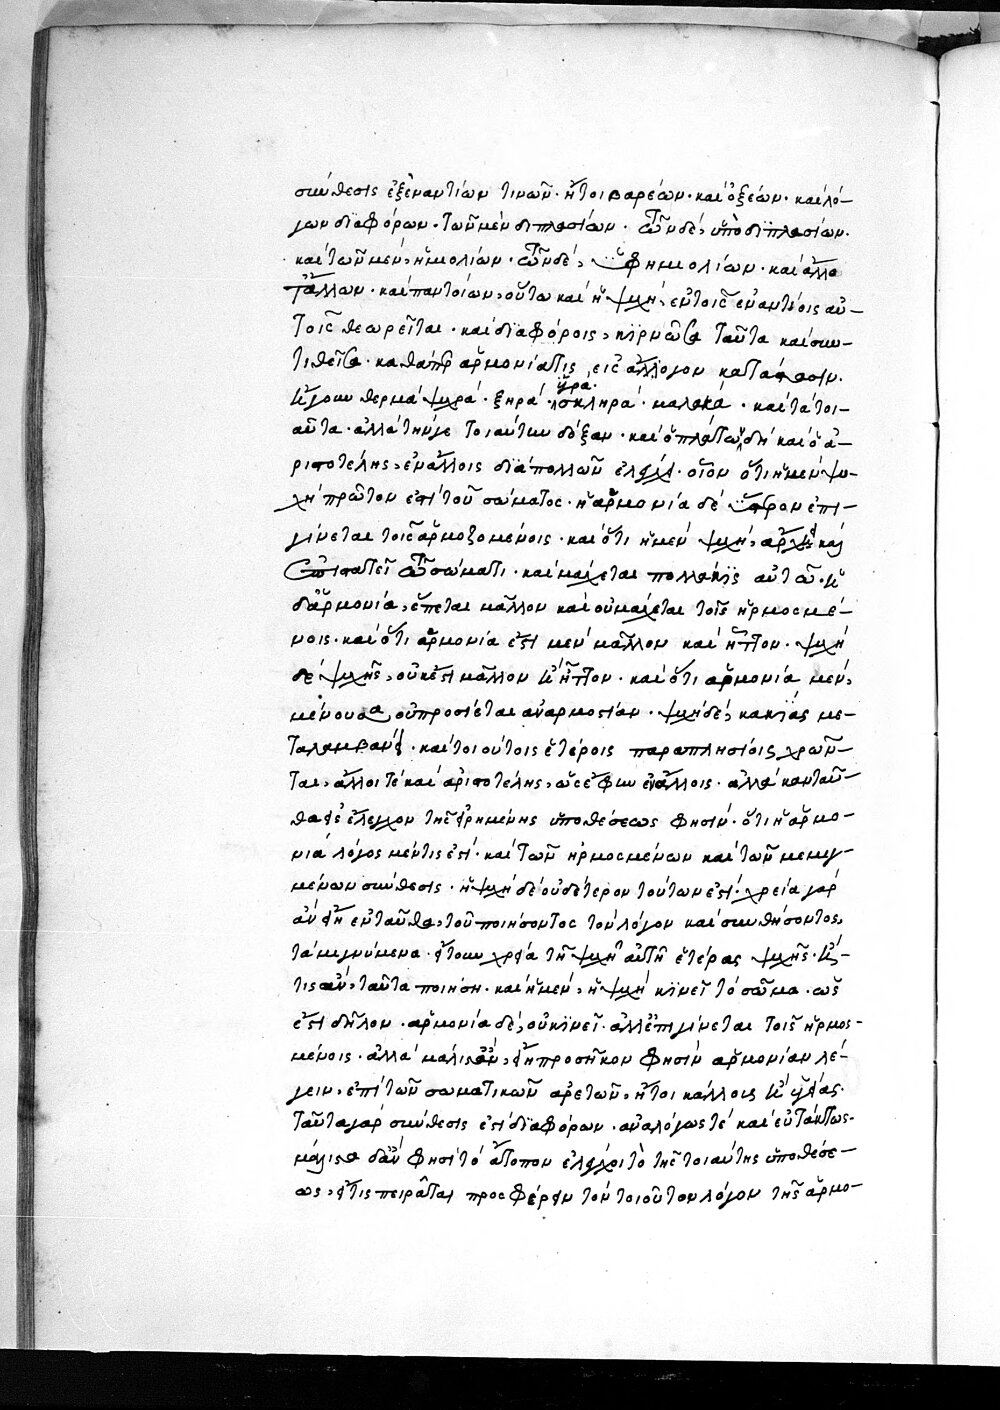 σύνθεσις ἐξ ἐναντίων τινῶν· ἤτοι βαρέων· καὶ ὀξέων· καὶ λό-
γων διαφόρων· τῶν μὲν διπλασίων· τῶν δὲ, ὑποδιπλασίων·
καὶ τῶν μὲν, ἡμιολίων· τῶν δὲ, ὑφημιολίων· καὶ ἄλλα
τ' ἄλλων· καὶ παντοίων, οὕτω καὶ ἡ ψυχὴ, ἐν τοῖς ἐναντίοις αὐ-
τοῖς θεωρεῖται· καὶ διαφόροις, κιρνῶσα ταῦτα καὶ συν-
τιθεῖσα· καθάπερ ἁρμονία τις εἰς ἀλλόγον κατάστασιν·
ἤγουν θερμὰ ψυχρά· ξηρά· ὑγρά· σκληρά· μαλακά· καὶ τὰ τοι-
αῦτα· ἀλλὰ τήν γε τοιαύτην δόξαν· καὶ ὁ πλάτων δὴ καὶ ὁ ἀ-
ριστοτέλης, ἐν ἄλλοις διὰ πολλῶν ἐλέγχει· οἷον ὅτι ἡ μὲν ψυ-
χὴ πρῶτον ἐπὶ τοῦ σώματος· ἡ ἁρμονία δὲ ὕστερον ἐπι-
γίνεται τοῖς ἁρμοζομένοις· καὶ ὅτι ἡ μὲν ψυχὴ, ἄρχει καὶ
ἐπιστατεῖ τῶ σώματι· καὶ μάχεται πολλάκις αὐτῶ· ἡ
δ' ἁρμονία, ἕπεται μᾶλλον καὶ οὐ μάχεται τοῖς ἡρμοσμέ-
νοις· καὶ ὅτι ἁρμονία ἐστὶ μὲν μᾶλλον καὶ ἧττον· ψυχὴ
δὲ ψυχῆς, οὐκ ἔστι μᾶλλον καὶ ἧττον· καὶ ὅτι ἁρμονία μὲν,
μένουσα οὐ προσίεται ἀναρμοστίαν· ψυχὴ δὲ, κακίας με-
ταλαμβάνει· καὶ τοιούτοις ἑτέροις παραπλησίοις χρῶν-
ται, ἄλλοι τε καὶ ἀριστοτέλης, ὡς ἔφην ἐν ἄλλοις· ἀλλὰ κἀνταῦ-
θα εἰς ἔλεγχον τῆς εἰρημένης ὑποθέσεως φησὶν· ὅτι ἡ ἁρμο-
νία λόγος μέν τις ἐστὶ· καὶ τῶν ἡρμοσμένων καὶ τῶν μεμιγ-
μένων σύνθεσις· ἡ ψυχὴ δὲ οὐδέτερον τούτων ἐστὶ· χρεία γὰρ
ἂν εἴη ἐνταῦθα, τοῦ ποιήσοντος τὸν λόγον καὶ συνθήσοντος,
τὰ μιγνύμενα· εἴτουν χρεία τῆ ψυχῆ αὐτῆ ἑτέρας ψυχῆς· ἥ-
τις ἂν, ταῦτα ποιήση· καὶ ἡ μὲν, ἡ ψυχὴ κινεῖ τὸ σῶμα· ὡς
ἔστι δῆλον· ἁρμονία δὲ, οὐ κινεῖ· ἀλλ' ἐπιγίνεται τοῖς ἡρμοσ-
μένοις· ἀλλὰ μάλιστ' ἂν, εἴη προσῆκον φησὶν ἁρμονίαν λέ-
γειν, ἐπὶ τῶν σωματικῶν ἀρετῶν, ἤτοι κάλλους καὶ ὑγείας·
ταῦτα γὰρ σύνθεσις ἐστὶ διαφόρων· ἀναλόγως τὲ καὶ εὐτάκτως·
μάλιστα δ' ἂν φησὶ τὸ ἄτοπον ἐλέγχοιτο τῆς τοιαύτης ὑποθέσε-
ως, εἴ τις πειρᾶται προσφέρειν τὸν τοιοῦτον λόγον τῆς ἁρμο-